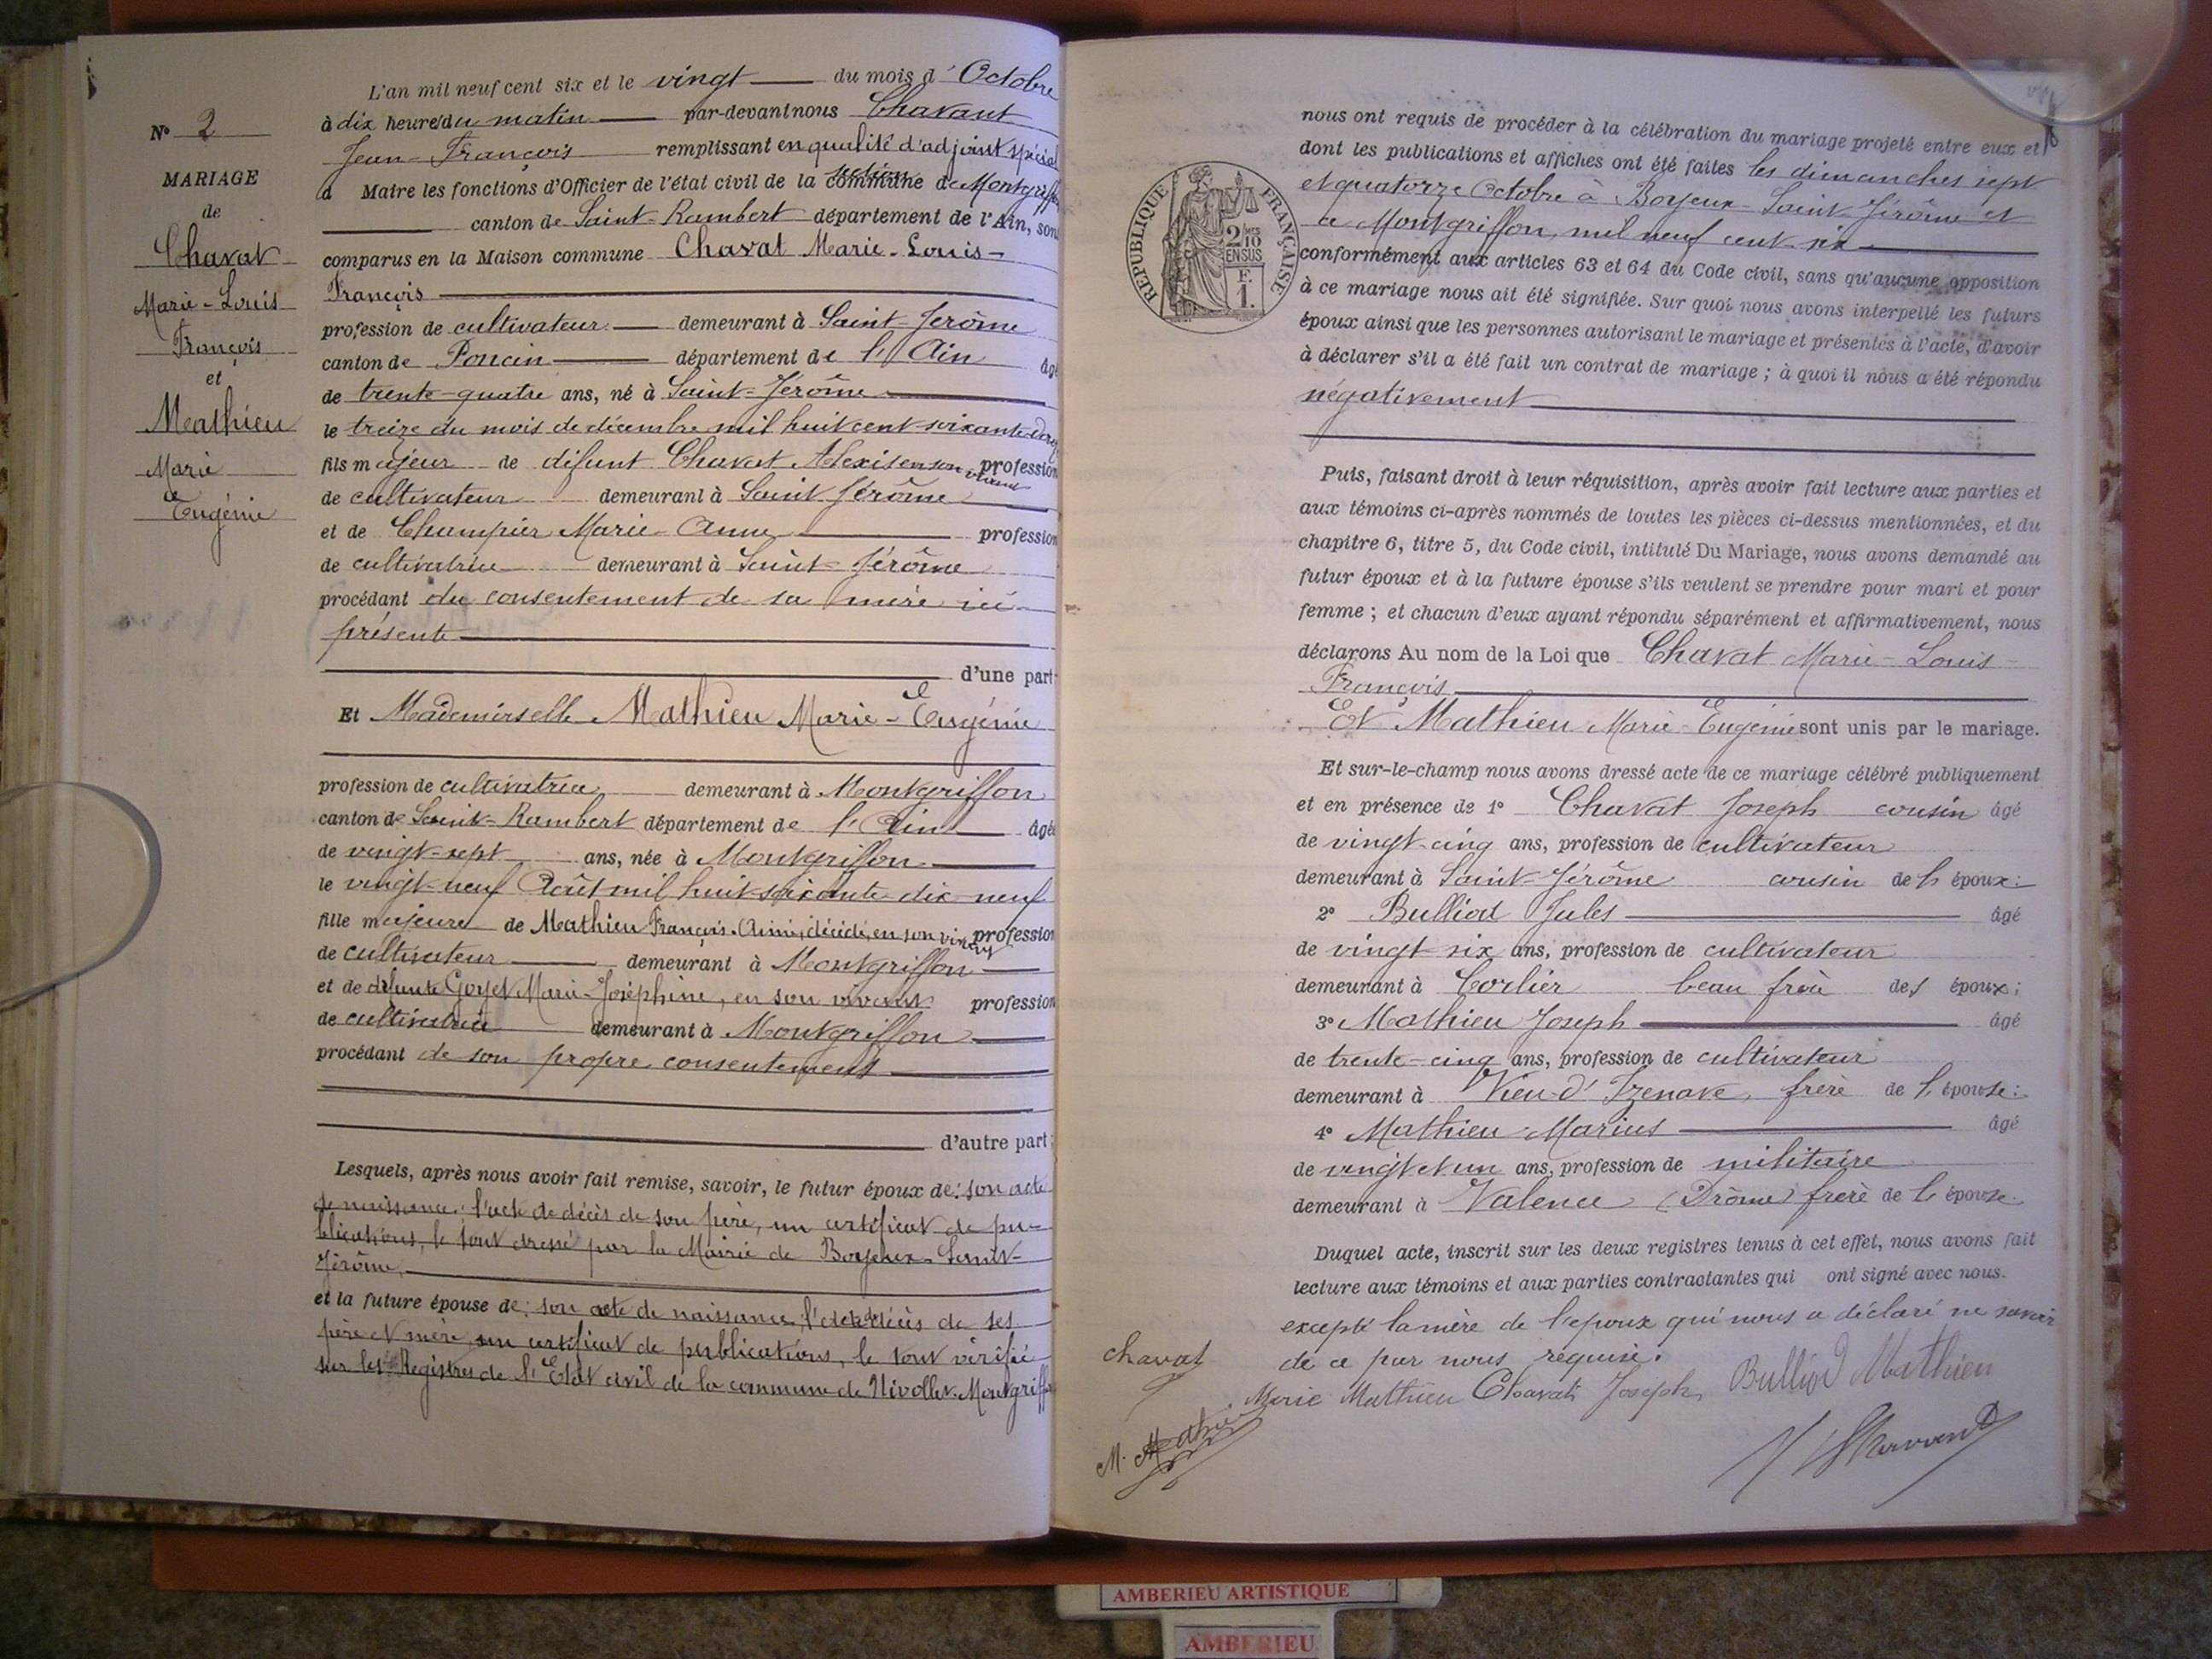 N° 2
MARIAGE
de
Chavat
Marie-Louis
François
et
Mathieu
Marie
Eugénie
L'an mil neuf cent six et le vingt du mois d'Octobre
à dix heures du matin par-devant nous Chavant
Jean-François remplissant en qualité d'adjoint spécial
d Maire les fonctions d'Officier de l'état civil de la commune section de Montgriffon
canton de Saint-Rambert département de l'Ain, sont
comparus en la Maison commune Chavat Marie-Louis-
François
profession de cultivateur demeurant à Saint-Jérôme
canton de Poncin département de l'Ain âgé
de trente-quatre ans, né à Saint-Jérôme
le treize du mois de décembre mil huit cent soixante-onze
fils majeur de défunt Chavat Alexis en son vivant profession
de cultivateur demeurant à Saint Jérôme
et de Champier Marie-Anne profession
de cultivatrice demeurant à Saint-Jérôme
procédant du consentement de sa mère ici
présente
d'une part
Et Mademoiselle Mathieu Marie-Eugénie
profession de cultivatrice demeurant à Montgriffon
canton de Saint-Rambert département de l'Ain âgée
de vingt-sept ans, née à Montgriffon
le vingt-neuf Août mil huit soixante-dix-neuf
fille majeure de Mathieu François-Aimé, décédé, en son vivant profession
de cultivateur demeurant à Montgriffon
et de défunte Goyet Marie-Joséphine, en son vivant profession
de cultivatrice demeurant à Montgriffon
procédant de son propre consentement
d'autre part;
Lesquels, après nous avoir fait remise, savoir, le futur époux de: son acte
de naissance, l'acte de décès de son père, un certificat de pu-
blications, le tout dressé par la Mairie de Boyeux-Saint-
Jérôme,
et la future épouse de: son acte de naissance, l'acte décès de ses
père et mère, un certificat de publications, le tout vérifié
sur les Registres de l'Etat civil de la commune de Nivollet-Montgriffon
RÉPUBLIQUE FRANÇAISE
2/10
EN SUS
F.
1.
nous ont requis de procéder à la célébration du mariage projeté entre eux et
dont les publications et affiches ont été faites les dimanches sept
et quatorze Octobre à Boyeux-Saint-Jérôme et
à Montgriffon, mil neuf cent six
conformément aux articles 63 et 64 du Code civil, sans qu'aucune opposition
à ce mariage nous ait été signifiée. Sur quoi nous avons interpellé les futurs
époux ainsi que les personnes autorisant le mariage et présentes à l'acte, d'avoir
à déclarer s'il a été fait un contrat de mariage; à quoi il nous a été répondu
négativement
Puis, faisant droit à leur réquisition, après avoir fait lecture aux parties et
aux témoins ci-après nommés de toutes les pièces ci-dessus mentionnées, et du
chapitre 6, titre 5, du Code civil, intitulé Du Mariage, nous avons demandé au
futur époux et à la future épouse s'ils veulent se prendre pour mari et pour
femme; et chacun d'eux ayant répondu séparément et affirmativement, nous
déclarons Au nom de la Loi que Chavat Marie-Louis-
François
Et Mathieu Marie-Eugénie sont unis par le mariage.
Et sur-le-champ nous avons dressé acte de ce mariage célébré publiquement
et en présence de 1° Chavat Joseph cousin âgé
de vingt-cinq ans, profession de cultivateur
demeurant à Saint-Jérôme cousin de l'époux:
2° Bulliod Jules âgé
de vingt-six ans, profession de cultivateur
demeurant à Corlier beau frère des époux;
3° Mathieu Joseph âgé
de trente-cinq ans, profession de cultivateur
demeurant à Vieu-d'Izenave, frère de l'épouse:
4° Mathieu Marius âgé
de vingt et un ans, profession de militaire
demeurant à Valence (Drôme) frère de l'épouse.
Duquel acte, inscrit sur les deux registres tenus à cet effet, nous avons fait
lecture aux témoins et aux parties contractantes qui ont signé avec nous.
excepté la mère de l'époux qui nous a déclaré ne savoir
de ce par nous requise.
Chavat
Marie Mathieu Chavat Joseph Bulliod Mathieu
M. Mathieu
Chavant
AMBERIEU ARTISTIQUE
AMBERIEU